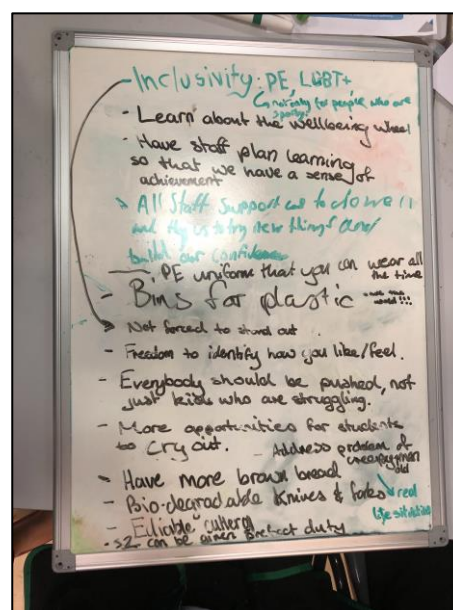 - Inclusivity: PE, LGBT+
not only for people who are sporty!
- Learn about the wellbeing wheel
- Have staff plan learning
so that we have a sense of
achievement
All Staff support us to do well
and try new things and
build our confidence
PE uniform that you can wear all
the time
- Bins for plastic
Not forced to stand out
- Freedom to identify how you like/feel.
- Everybody should be pushed, not
just kids who are struggling.
- More opportunities for students
to cry out.
- Address problem of
- Have more brown bread
- Bio-degradable knives & forks
real
life situations
- cutlery
- S2 can be given prefect duty